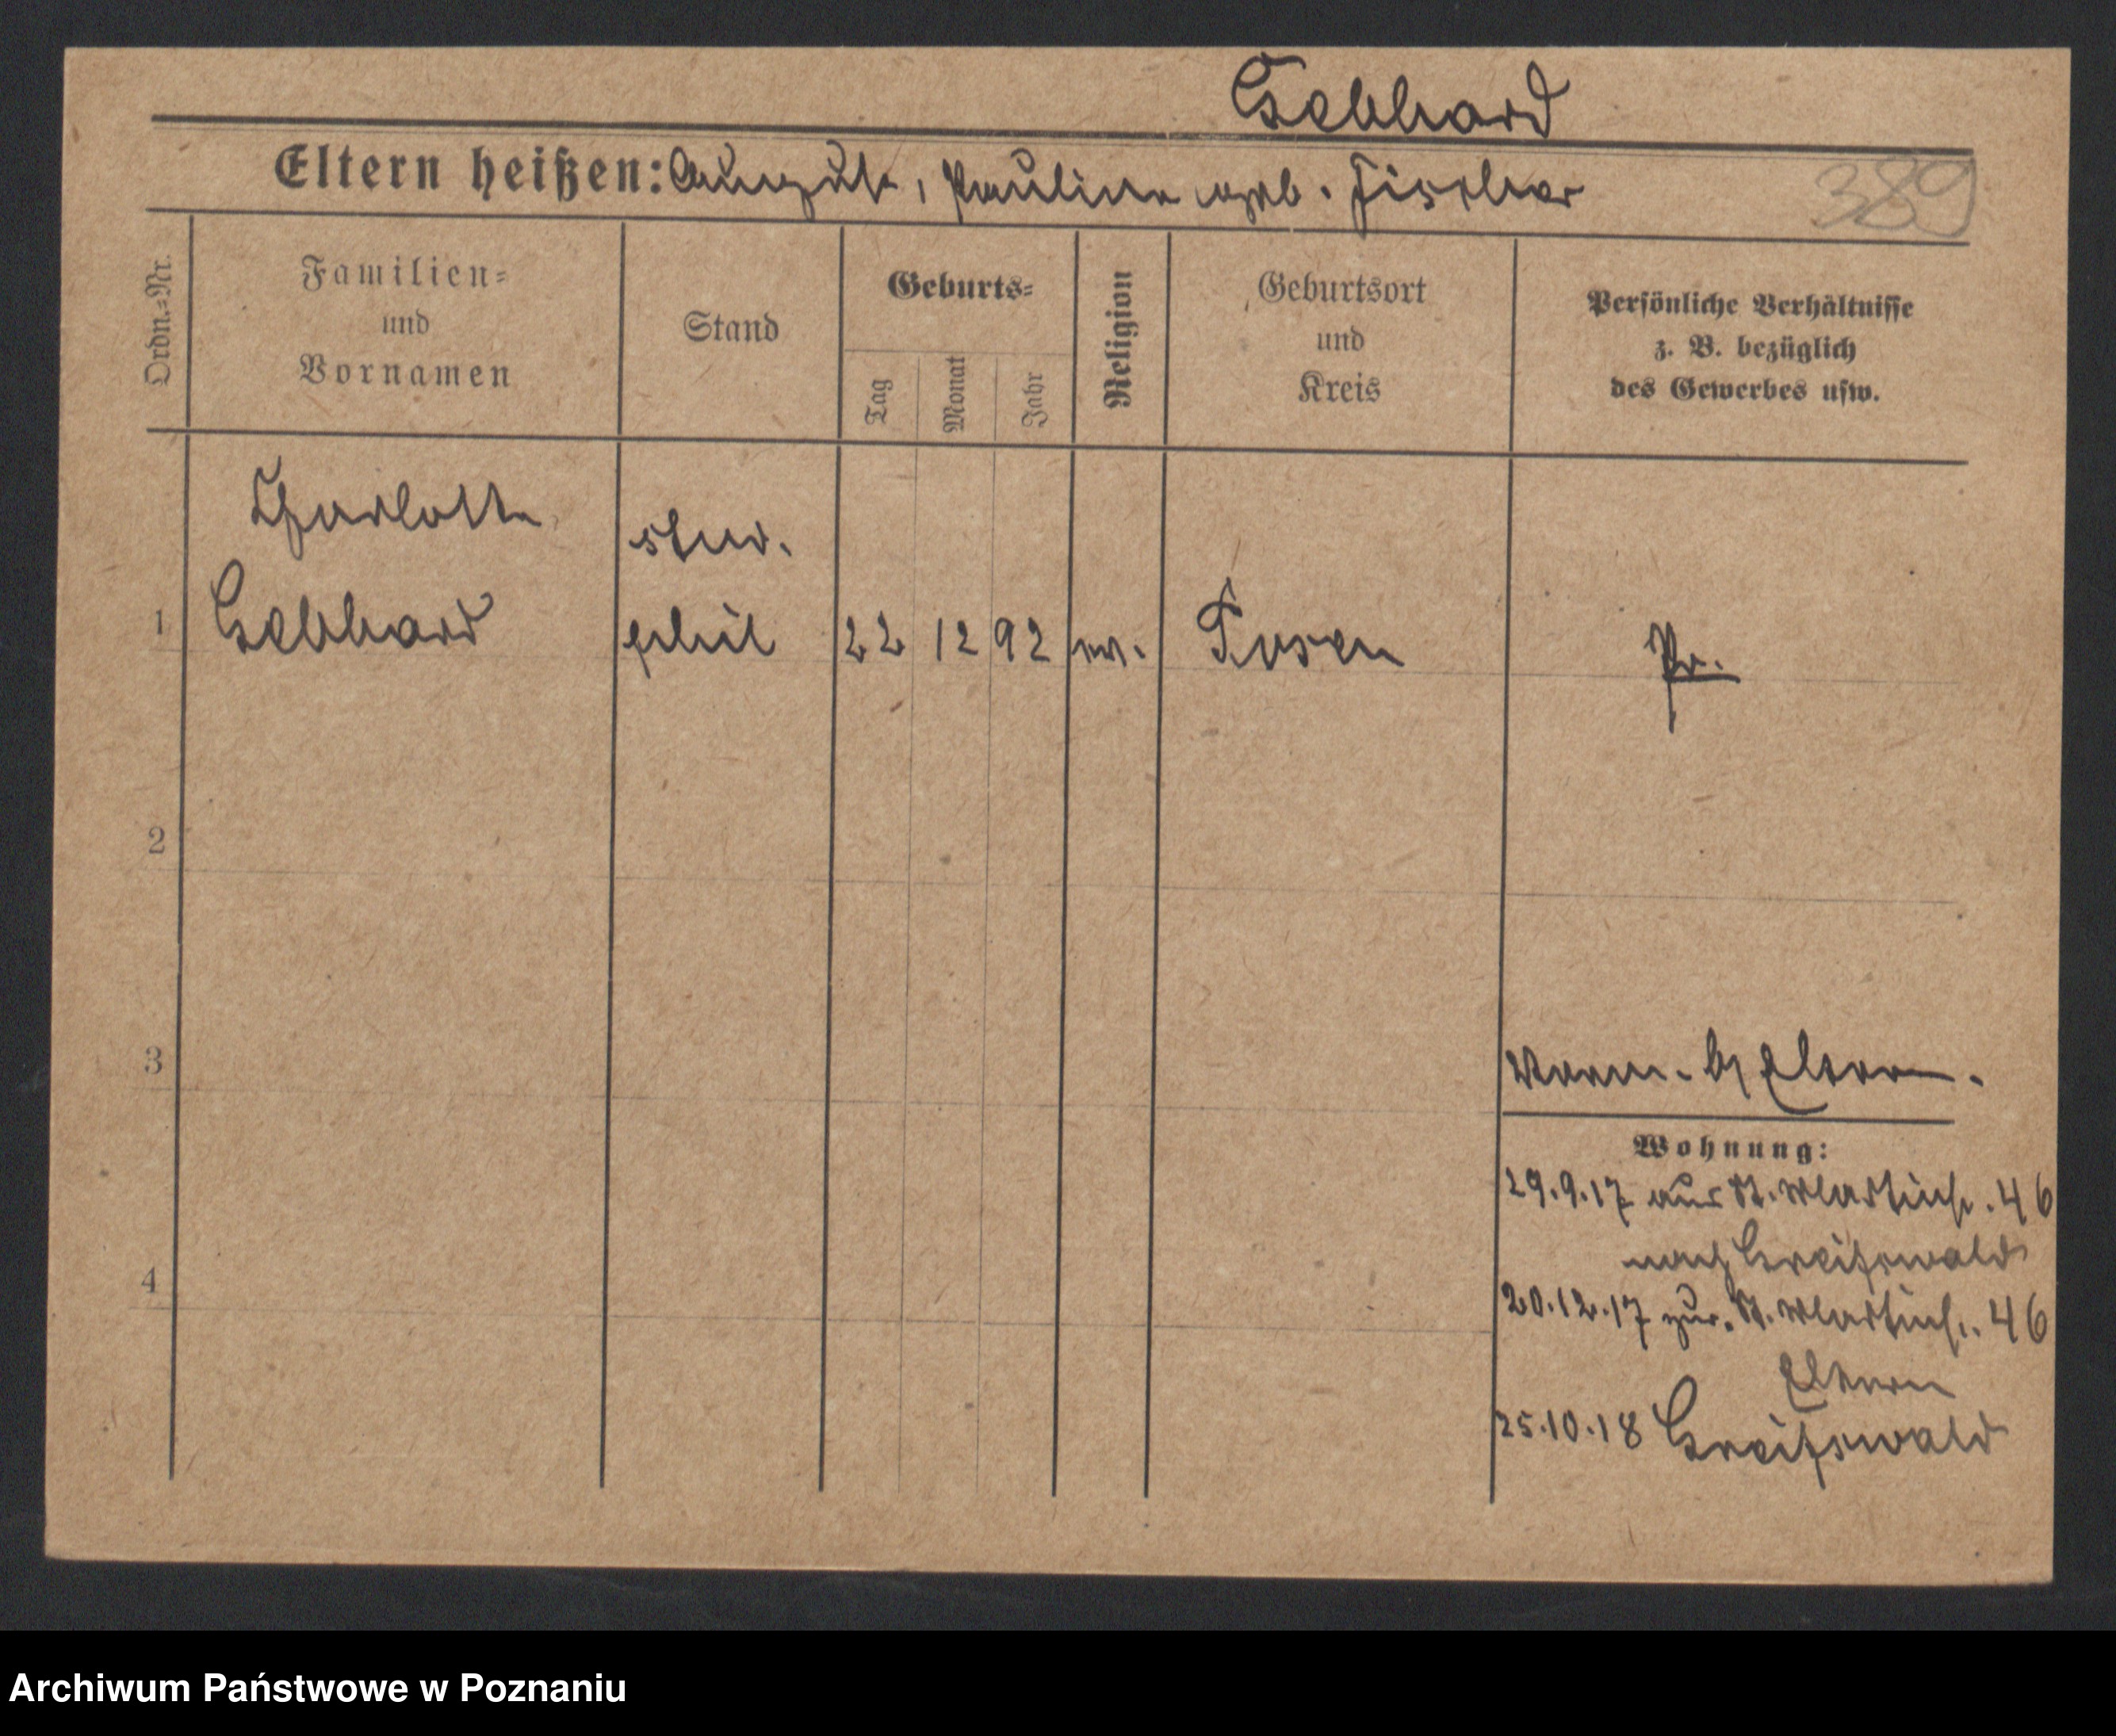 Gebhard
Eltern heißen: August, Pauline geb. Fischer
389
Ordn.-Nr.
Familien-
und
Vornamen
Stand
Geburts-
Tag
Monat
Jahr
Religion
Geburtsort
und
Kreis
Persönliche Verhältnisse
z. B. bezüglich
des Gewerbes usw.
Charlotte
stud.
1 Gebhard phil 22 12 92 Posen Pr.
2
3
b/ Eltern.
Wohnung:
29.9.17 aus St. Martinstr. 46
nach Greifswald
4
20.12.17 zur. St. Martinstr. 46
Eltern
25.10.18 Greifswald
Archiwum Państwowe w Poznaniu